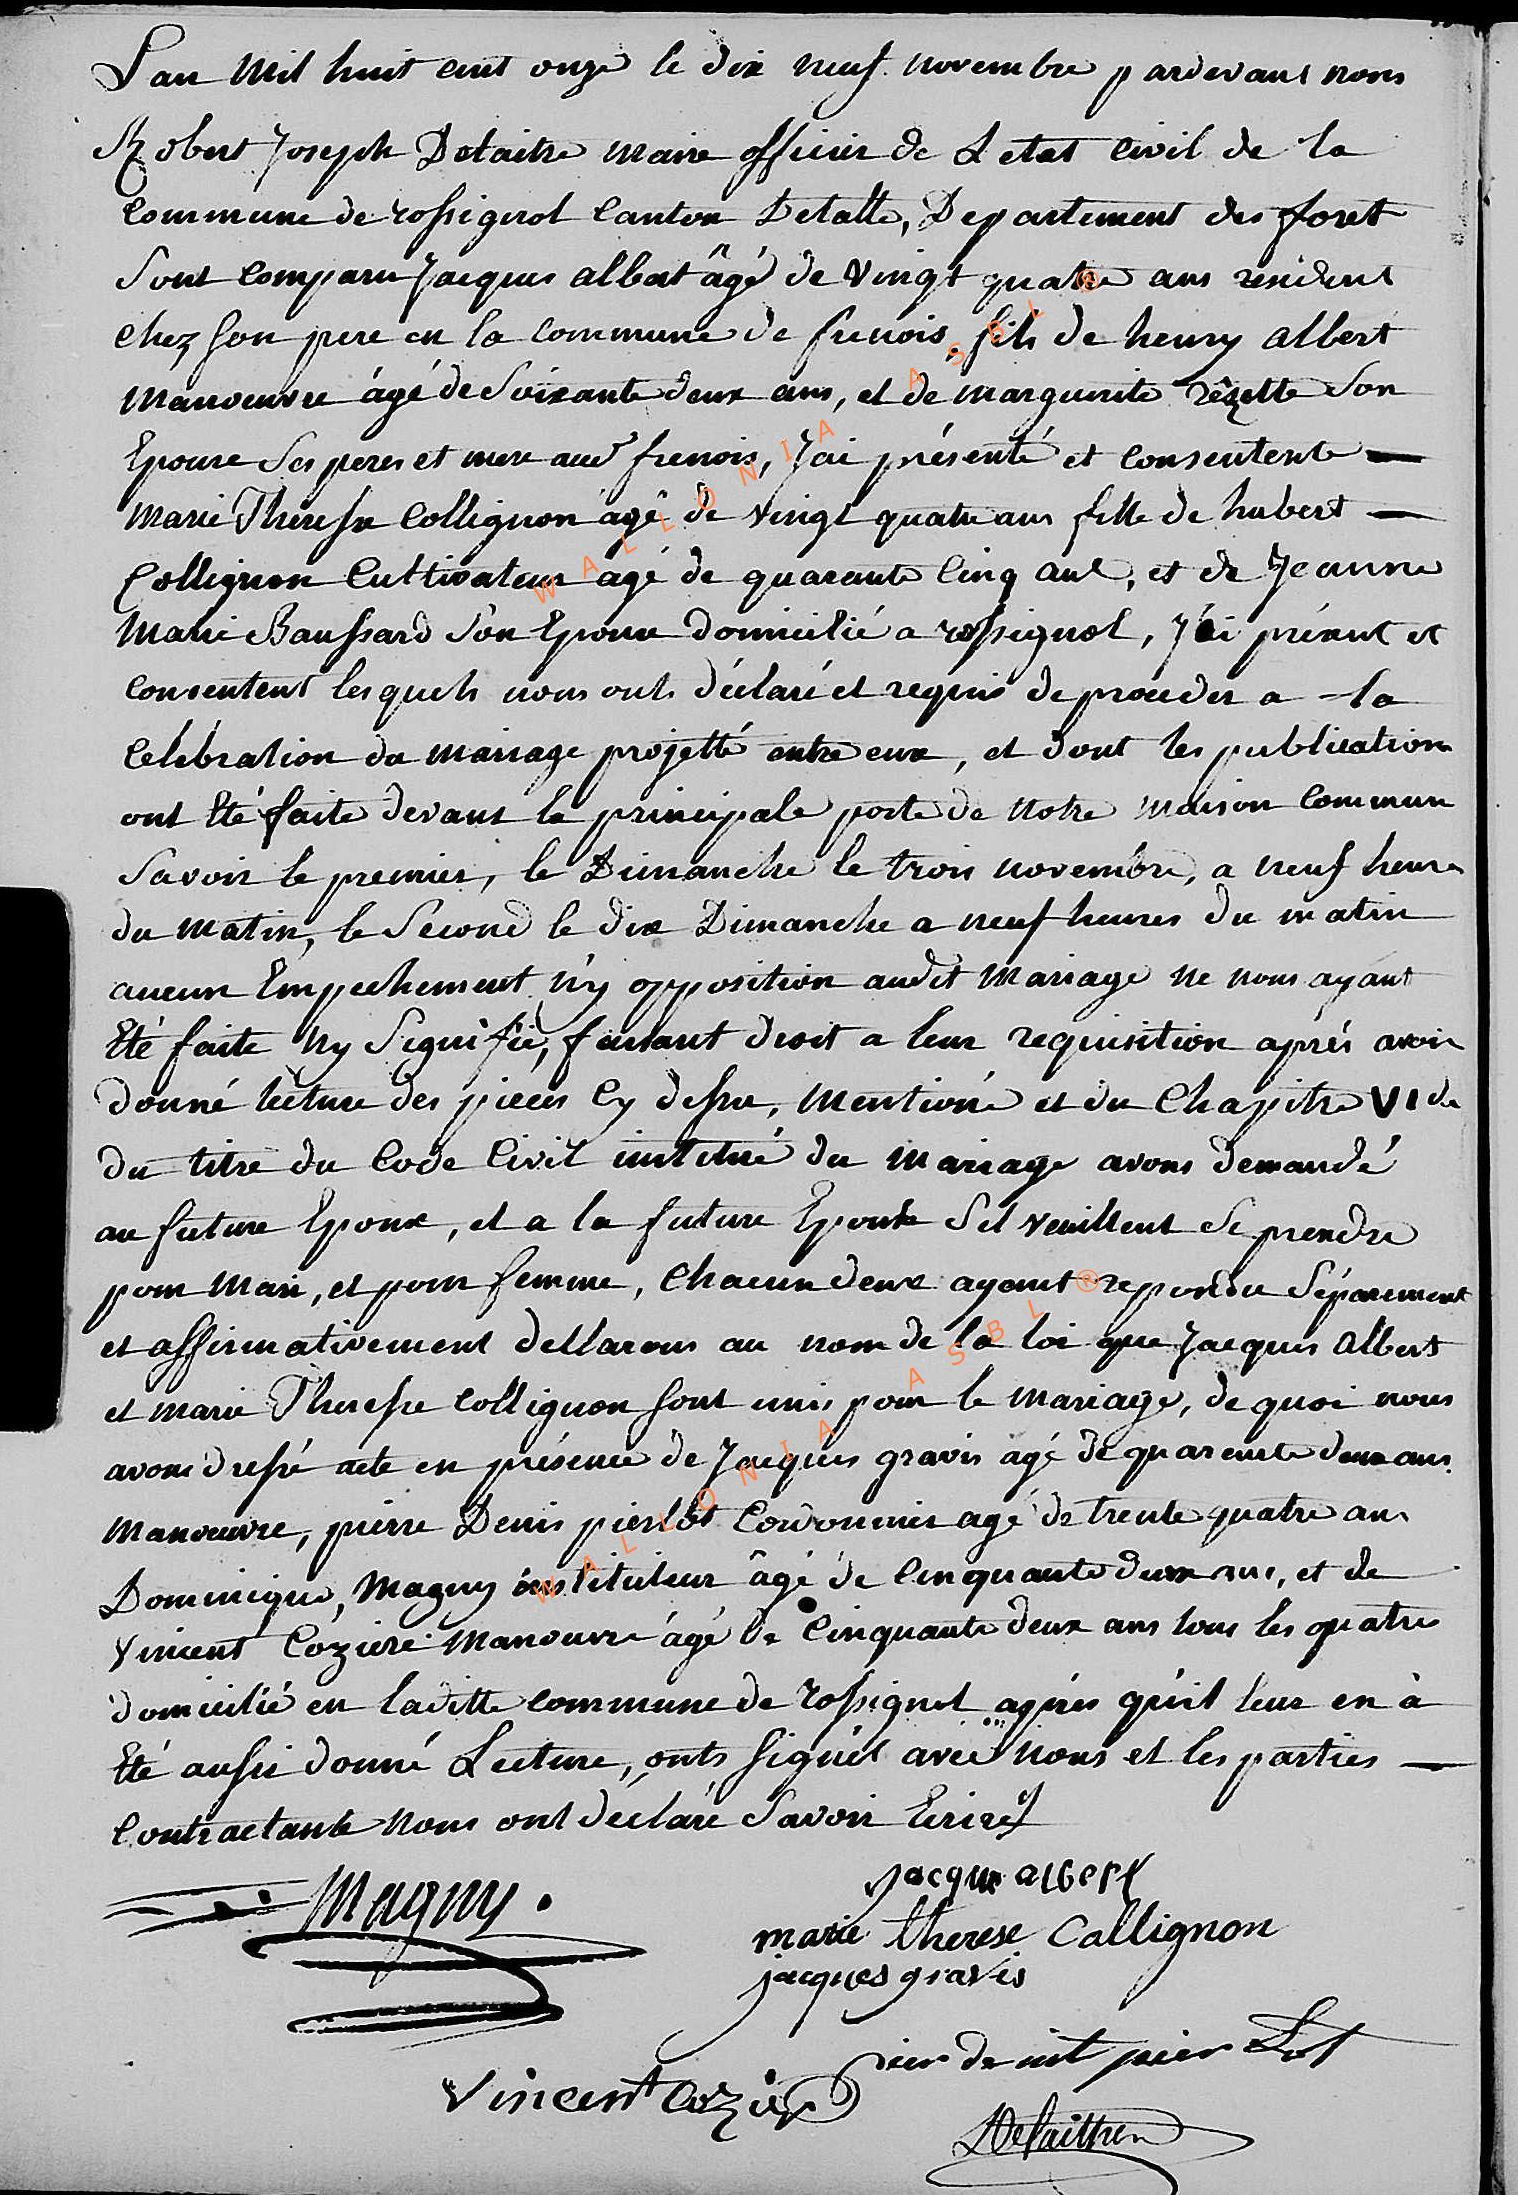 L'an mil huit cent onze le dix neuf novembre pardevant nous
Robert Joseph Delaitre maire officier de L'etat civil de la
commune de rossignol canton Detalle, Departement des forett
Sont comparu Jacques albert âgé de vingt quatre ans resident
chez son pere en la commune de frenois, fils de henry albert
manoeuvre âgé de Soixante deux ans, et de marguerite rêzette Son
Epouse Ses peres et mere audt frenois, J'ci présenté et consentente
marie Therese Collignon âgé de vingt quatre ans fille de hubert
Collignon Cultivateur âgé de quarante Cinq ans, et de Jeanne
Marie Baussard Son Epouse domicilié a rossignol, J'ci présent et
consentent lesquels nous onts déclaré et requis de proceder a la
Celebration du mariage projetté entre eux, et dont les publications
ont Eté faite devant la principale porte de notre maison commun
Savoir le premier, le Dimanche le trois novembre, a neuf heures
du matin, le Second le dix Dimanche a neuf heures du matin
aucun Empechement n'y opposition audit mariage ne nous ayant
Eté faite ny Signifié, faisant droit a leur requisition aprés avoir
donné lecture des pieces Cy dessu, mentioné et du Chapitre VI de
du titre du Code Civil intitulé du mariage avons demandé
au future Epoux, et a la future Epouse S'il veuillent Se prendre
pour mari, et pour femme, Chacun deux ayant repondu Séparement
et affirmativement dellarons au nom de la loi que Jacques albert
et marie Therese collignon sont unis pour le mariage, de quoi nous
avons dressé acte en présence de Jacques gravis agé de quarente deux ans
manoeuvre, pierre Denis pierlot Cordonnier agé de trente quatre ans
Dominique, Magny instituteur âgé de Cinquante deux ans, et de
Vincent Coziere manouvre âgé de Cinquante deux ans tous les quatre
domicilié en laditte commune de rossignol aprés qu'il leur en à
Eté aussi donné Lecture, onts signéz avec nous et les parties
Contractante nous ont déclaré Savoir Ecrire
Magny.
jacque albert
marie therese Collignon
jacques gravis
pier deni pier Lot
Vincent Cozier
Delaittre
WALLONIA ASBL ®
WALLONIA ASBL ®